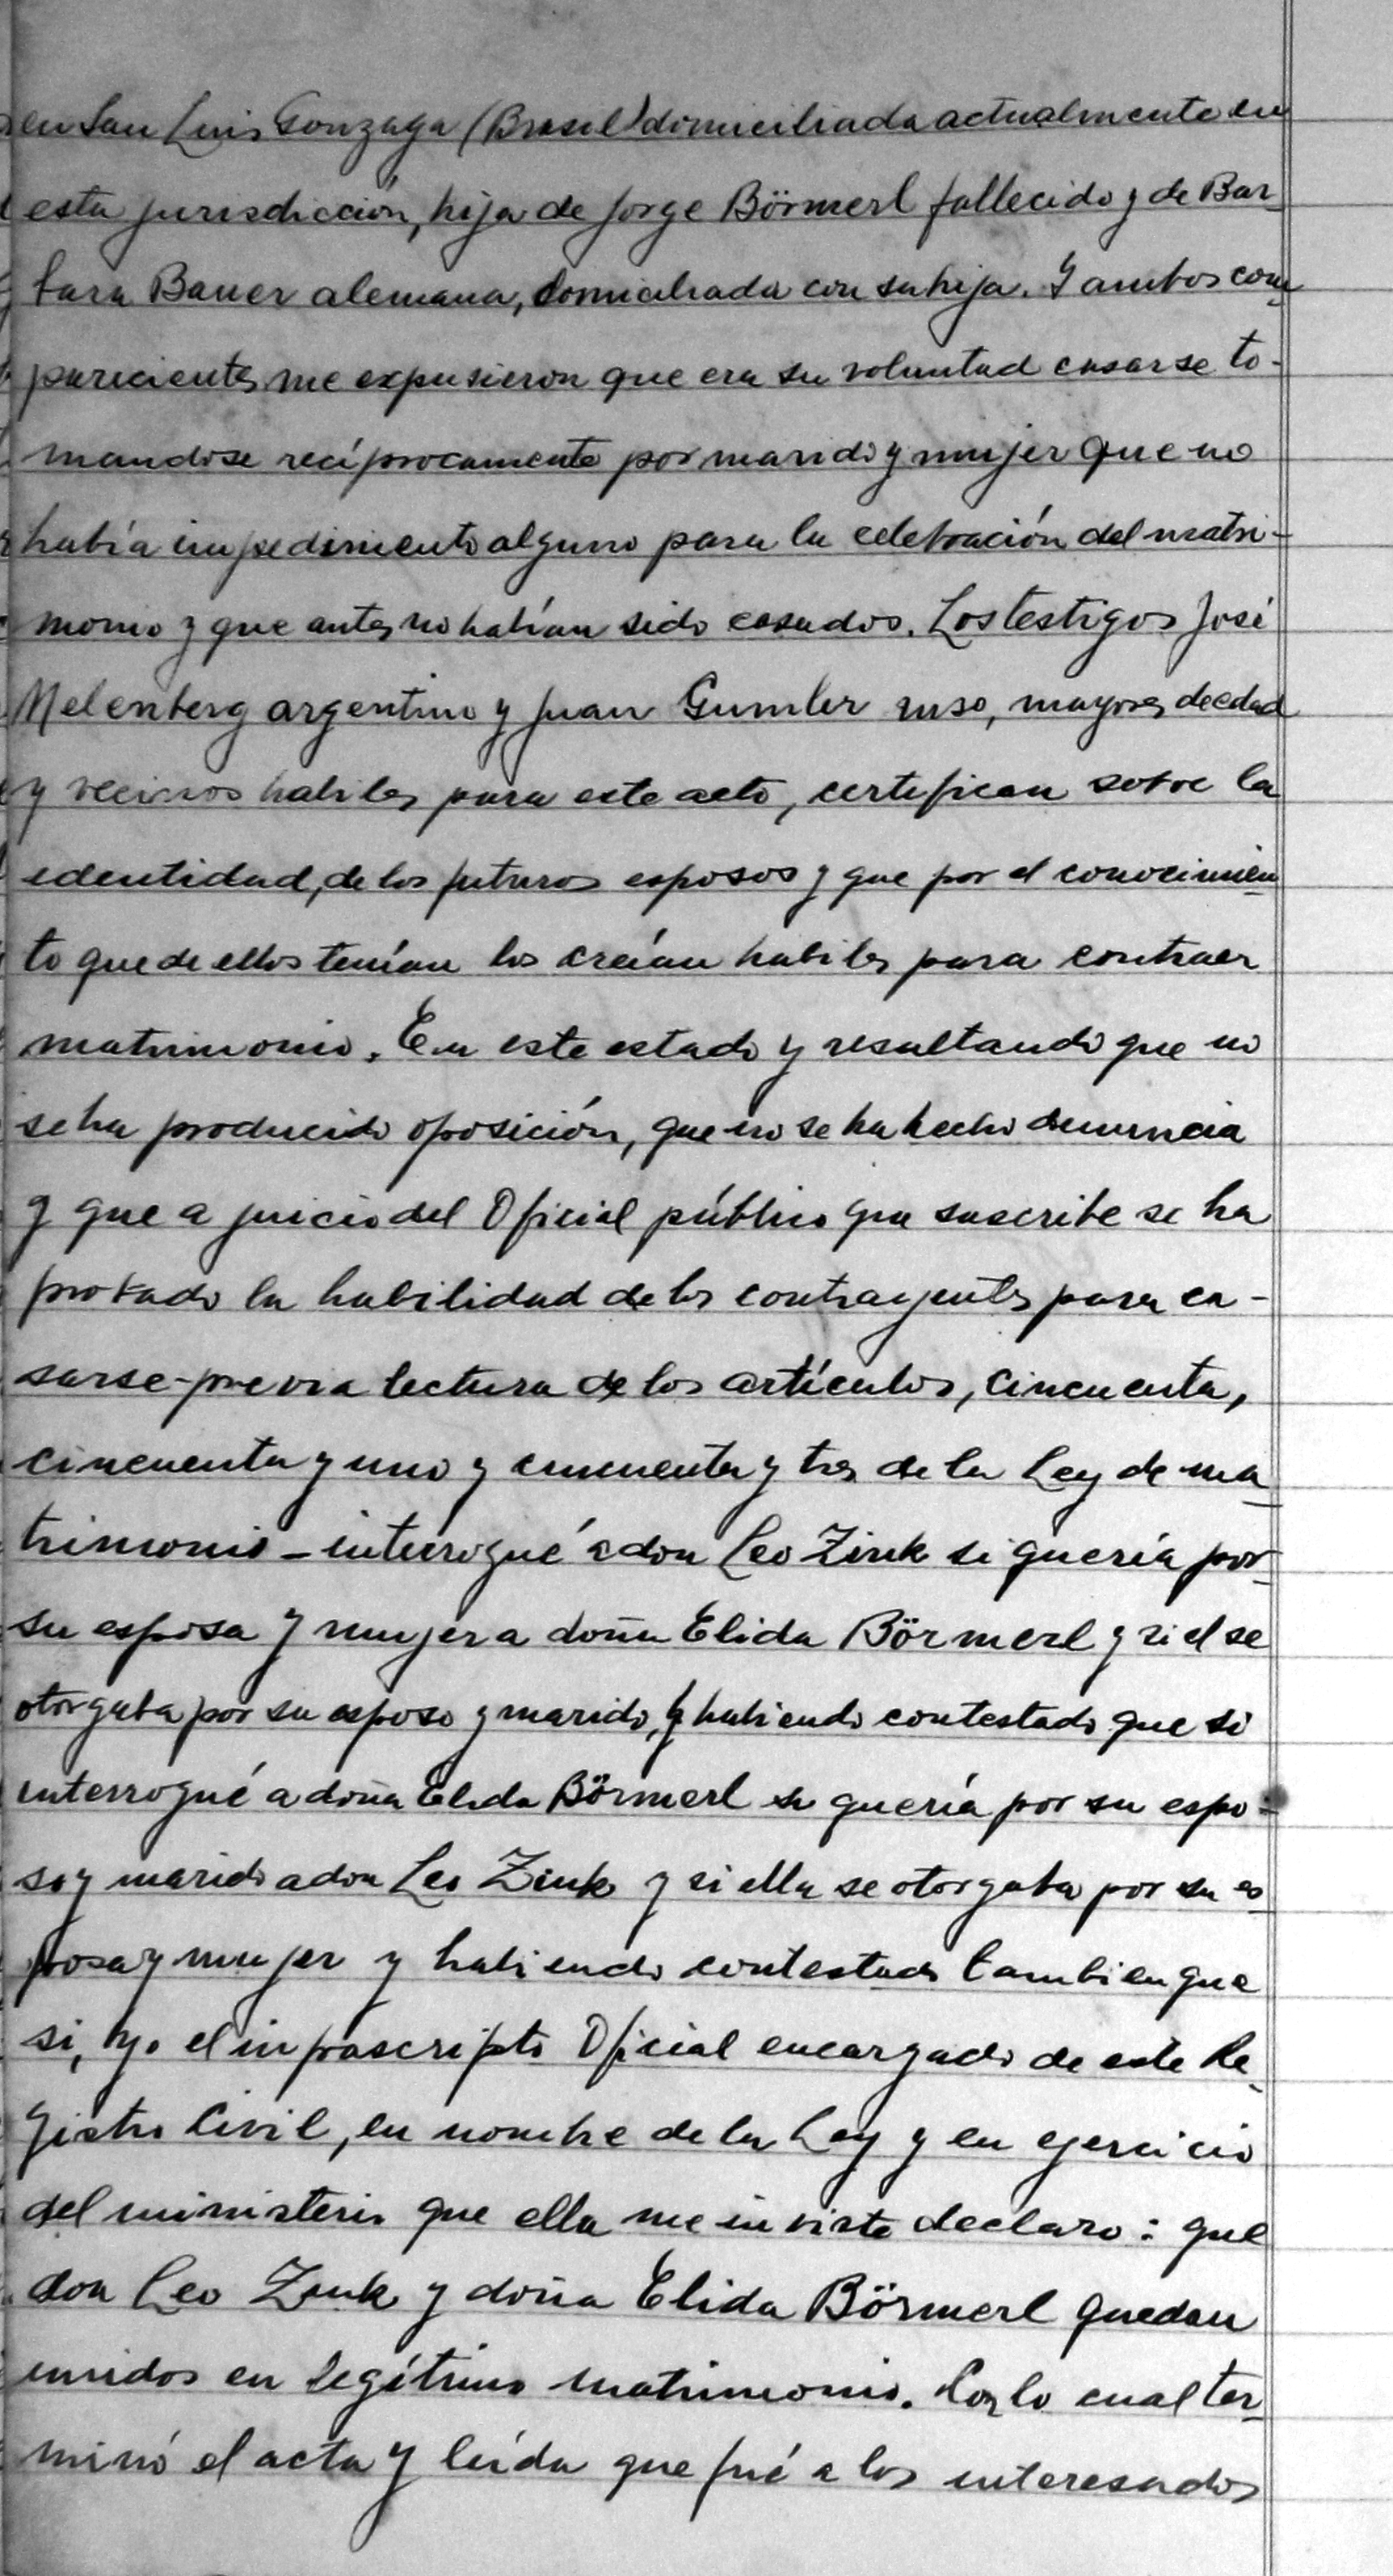 en San Luis Gonzaga (Brasil) domiciliada actualmente en
esta jurisdicción, hija de Jorge Börmerl fallecido y de Bar-
bara Bauer alemana, domiciliada con su hija. Y ambos com-
parecientes me expusieron que era su voluntad casarse to-
mandose recíprocamente por marido y mujer que no
había impedimento alguno para la celebración del matri-
monio y que antes no habían sido casados. Los testigos José
Melenberg argentino y Juan Gumler ruso, mayores de edad
y vecinos habiles para este acto, certifican sobre la
identidad, de los futuros esposos y que por el conocimien-
to que de ellos tenían los creían habiles para contraer
matrimonio. En este estado y resultando que no
se ha producido oposición, que no se ha hecho denuncia
y que a juicio del Oficial público que suscribe se ha
probado la habilidad de los contrayentes para ca-
sarse-previa lectura de los artículos, cincuenta,
cincuenta y uno y cincuenta y tres de la Ley de ma-
trimonio - interrogué a don Leo Zink si quería por
su esposa y mujer a doña Elida Börmerl y si el se
otorgaba por su esposo y marido, y habiendo contestado que si
interrogué a doña Elida Börmerl si quería por su espo-
so y marido a don Leo Zink y si ella se otorgaba por su es-
posa y mujer y habiendo contestado tambien que
si, yo el infrascripto Oficial encargado de este Re-
gistro Civil, en nombre de la Ley y en ejercicio
del ministerio que ella me inviste declaro: que
don Leo Zink y doña Elida Börmerl quedan
unidos en legítimo matrimonio. Con lo cual ter-
minó el acta y leída que fué a los interesados